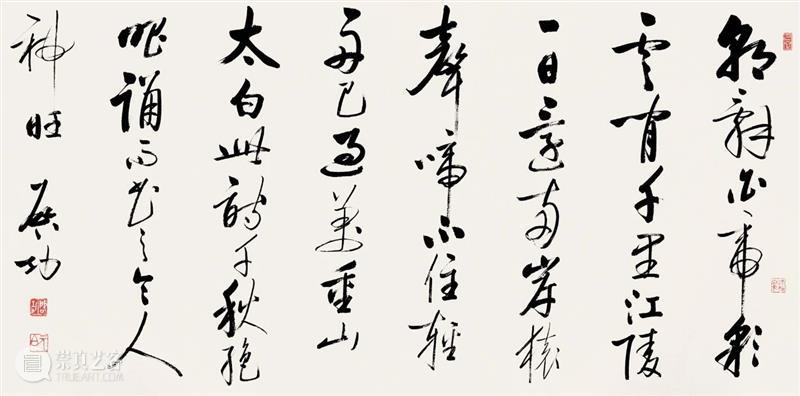 朝辭白帝彩
雲間千里江陵
一日還兩岸猿
聲啼不住輕
舟已過萬重山
太白此詩千秋絕
唱誦而書之令人
神旺 啟功
崇真艺客
TRUEART.COM